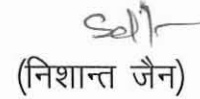 Sd/-
(निशान्त जैन)